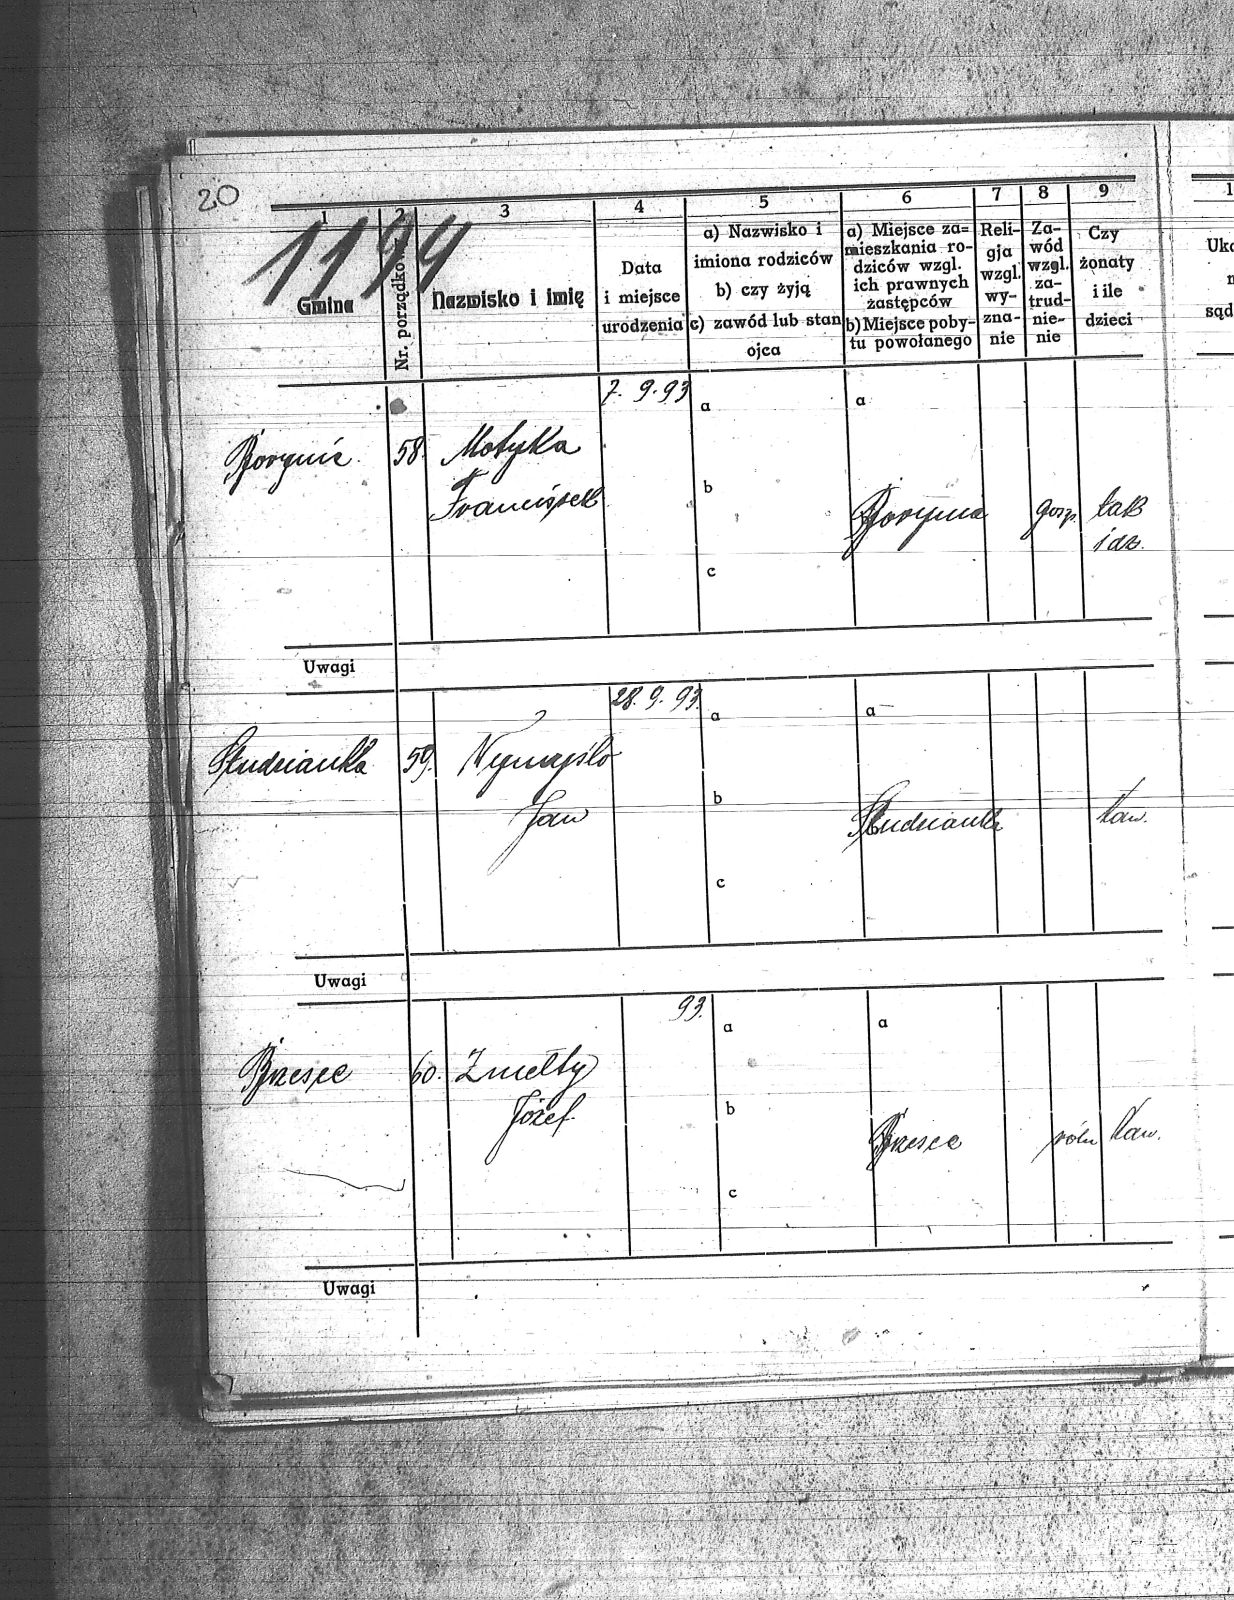 20
1194
1 2 3 4 5 6 7 8 9
Gmina
Nr. porządkow.
Nazwisko i imię
Data
i miejsce
urodzenia
a) Nazwisko i
imiona rodziców
b) czy żyją
c) zawód lub stan
ojca
a) Miejsce za=
mieszkania ro-
dziców wzgl.
ich prawnych
zastępców
b) Miejsce poby-
tu powołanego
Reli-
gja
wzgl.
wy-
zna-
nie
Za-
wód
wzgl.
za-
trud-
nie-
nie
Czy
żonaty
i ile
dzieci
1
Uko
sąd
7. 9. 93
a a
58. Motyka
Franciszek
b
gosp. tak
1 dz.
c
Uwagi
28. 9. 93.
a a
Studzianka 59.
Jan
b
Studzianka
c
Uwagi
93.
a a
Brzesce 60. Zmełty
Józef
b
Brzesce roln kaw.
c
Uwagi